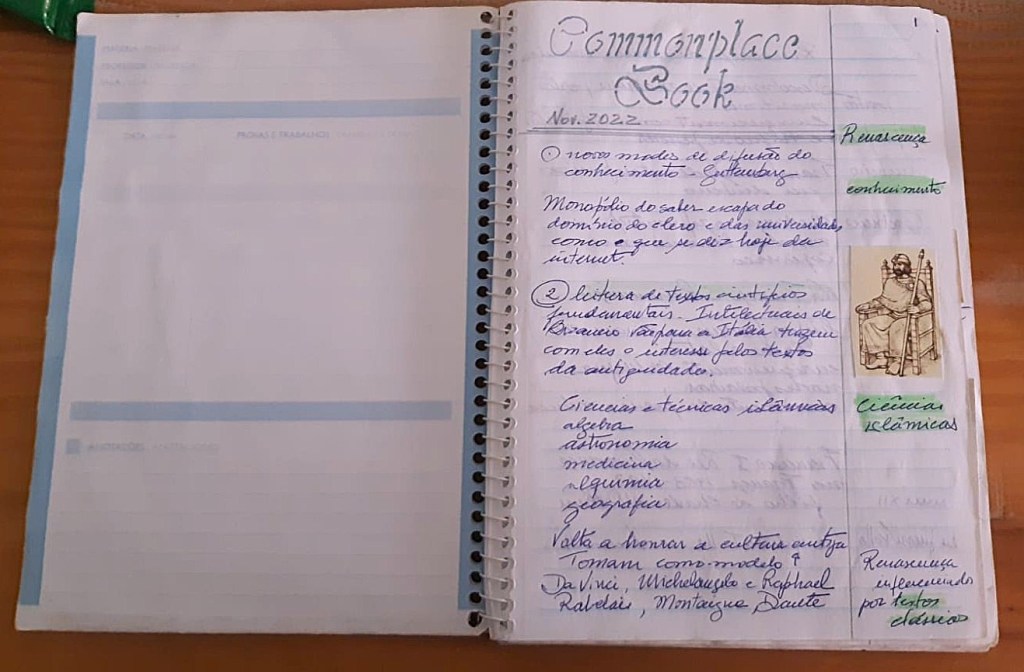 1
Commonplace
Book
Nov. 2022
Renascença
1 novos modos de difusão do
conhecimento - Guttemberg
conhecimento
Monopólio do saber escapa do
domínio do clero e das universidades
como o que se diz hoje da
internet.
2 leitura de textos científicos
fundamentais. Intelectuais de
Bizancio vão para a Itália trazem
com eles o interesse pelos textos
da antiguidade.
Ciencias e técnicas islâmicas
Ciências
islâmicas
algebra
astronomia
medicina
alquimia
geografia
Volta a honrar a cultura antiga
Tomam como modelo
Da Vinci, Michelangelo e Raphael
Rabelais, Montaigne, Dante
Renascença
influenciada
por textos
clássicos